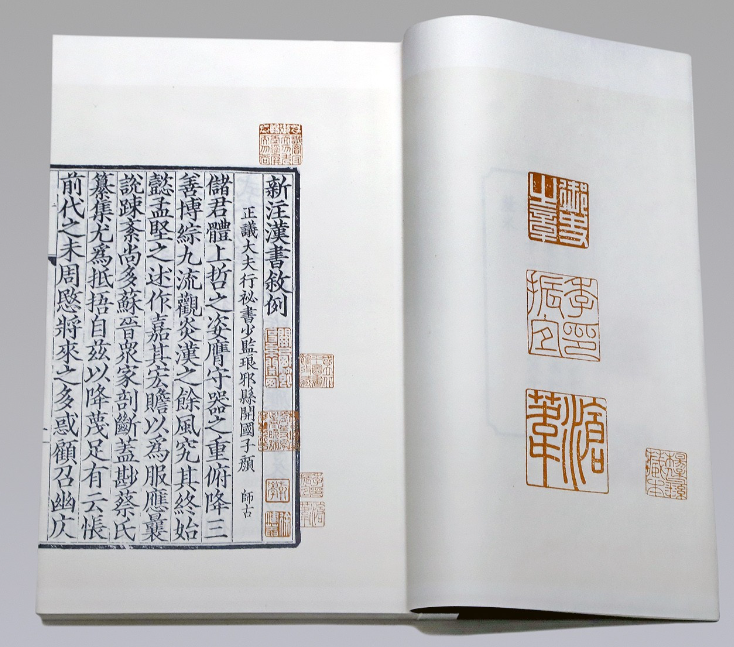 御史之章
季印振宜
滄葦
新注漢書敘例
正議大夫行秘書少監琅邪縣開國子顏 師古
儲君體上哲之姿膺守器之重俯降三
善博綜九流觀炎漢之餘風究其終始
懿孟堅之述作嘉其宏贍以為服應曩
說踈紊尚多蘇晉眾家剖斷蓋尠蔡氏
纂集尤為抵捂自茲以降蔑足有云悵
前代之未周愍將來之多惑顧召幽仄